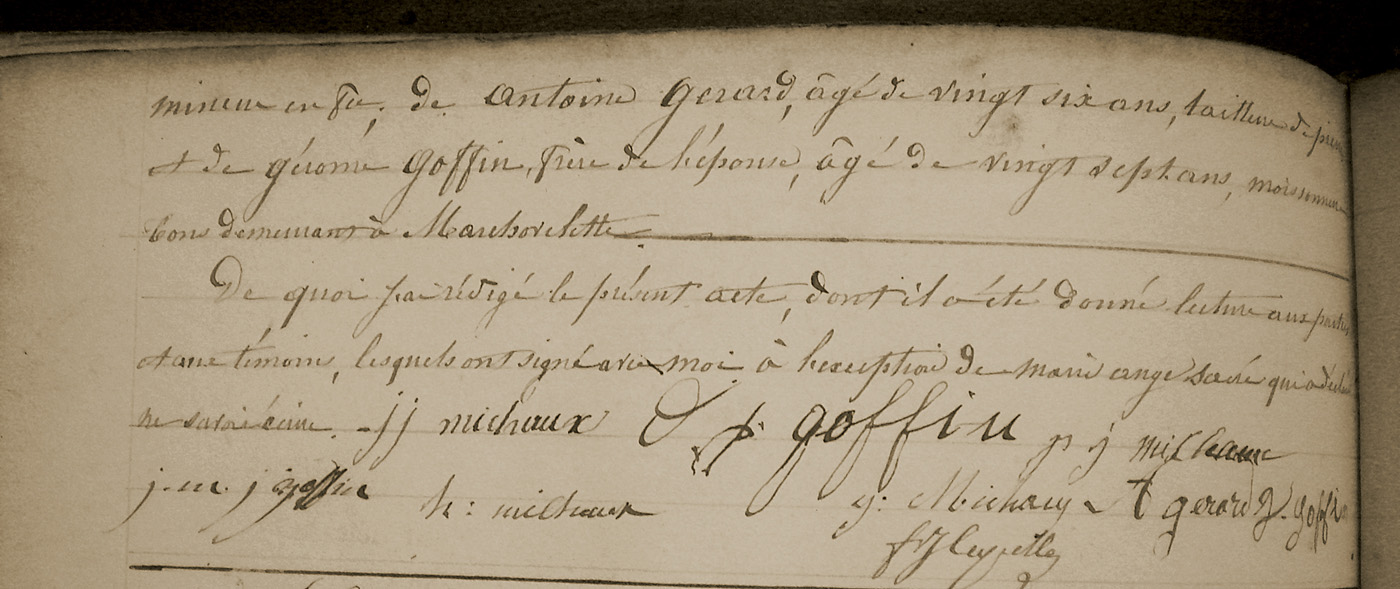 mineur en fer, de antoine gerard, âgé de vingt six ans, tailleur de pierre
et de gérome goffin, frère de l'épouse, âgé de vingt sept ans, moissonneur
tous demeurant à Marchovelette
De quoi j'ai rédigé le présent acte, dont il a été donné lecture aux parties
et aux témoins, lesquels ont signé avec moi à l'exception de marie ange sacré qui a déclaré
ne savoir écrire. jj michaux goffin p j michaux
j goffin h: michaux g: Michaux gerard g. goffin